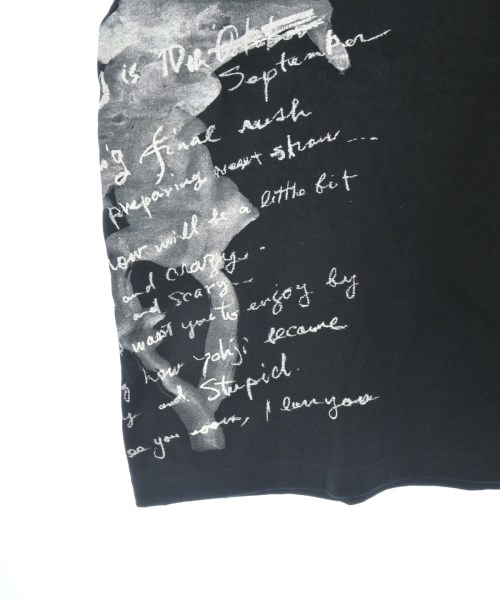 is 10th October
September
ng final rush
preparing next show...
how will be a little bit
and crazy...
and scary...
want you to enjoy by
how yohji became
and stupid.
see you soon, I love you